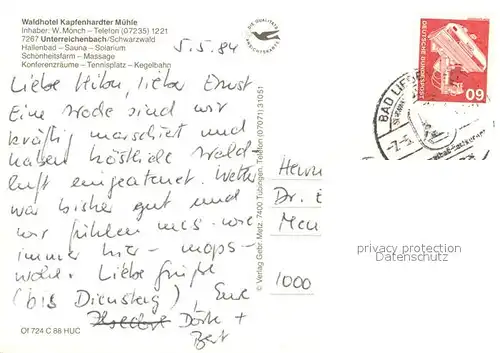 Waldhotel Kapfenhardter Mühle
Inhaber: W. Mönch – Telefon (07235) 1221
7267 Unterreichenbach/Schwarzwald
Hallenbad – Sauna – Solarium
Schönheitsfarm – Massage
Konferenzräume – Tennisplatz – Kegelbahn
DIE QUALITÄTS
ANSICHTSKARTE
5.5.84
Liebe, lieber Ernst
Eine Woche sind wir
kräftig marschiert und
haben köstliche Wald-
luft eingeatmet. Wetter
war bisher gut und
wir fühlen uns wie
immer hier – mops-
wohl. Liebe Grüße
(bis Dienstag), Eure
Dörte +
Bert
Of 724 C 88 HUC
© Verlag Gebr. Metz, 7400 Tübingen, Telefon (07071) 31051
DEUTSCHE BUNDESPOST
60
BAD LIEBE
-7.-5.
Herrn
Dr. E
1000
privacy protection
Datenschutz